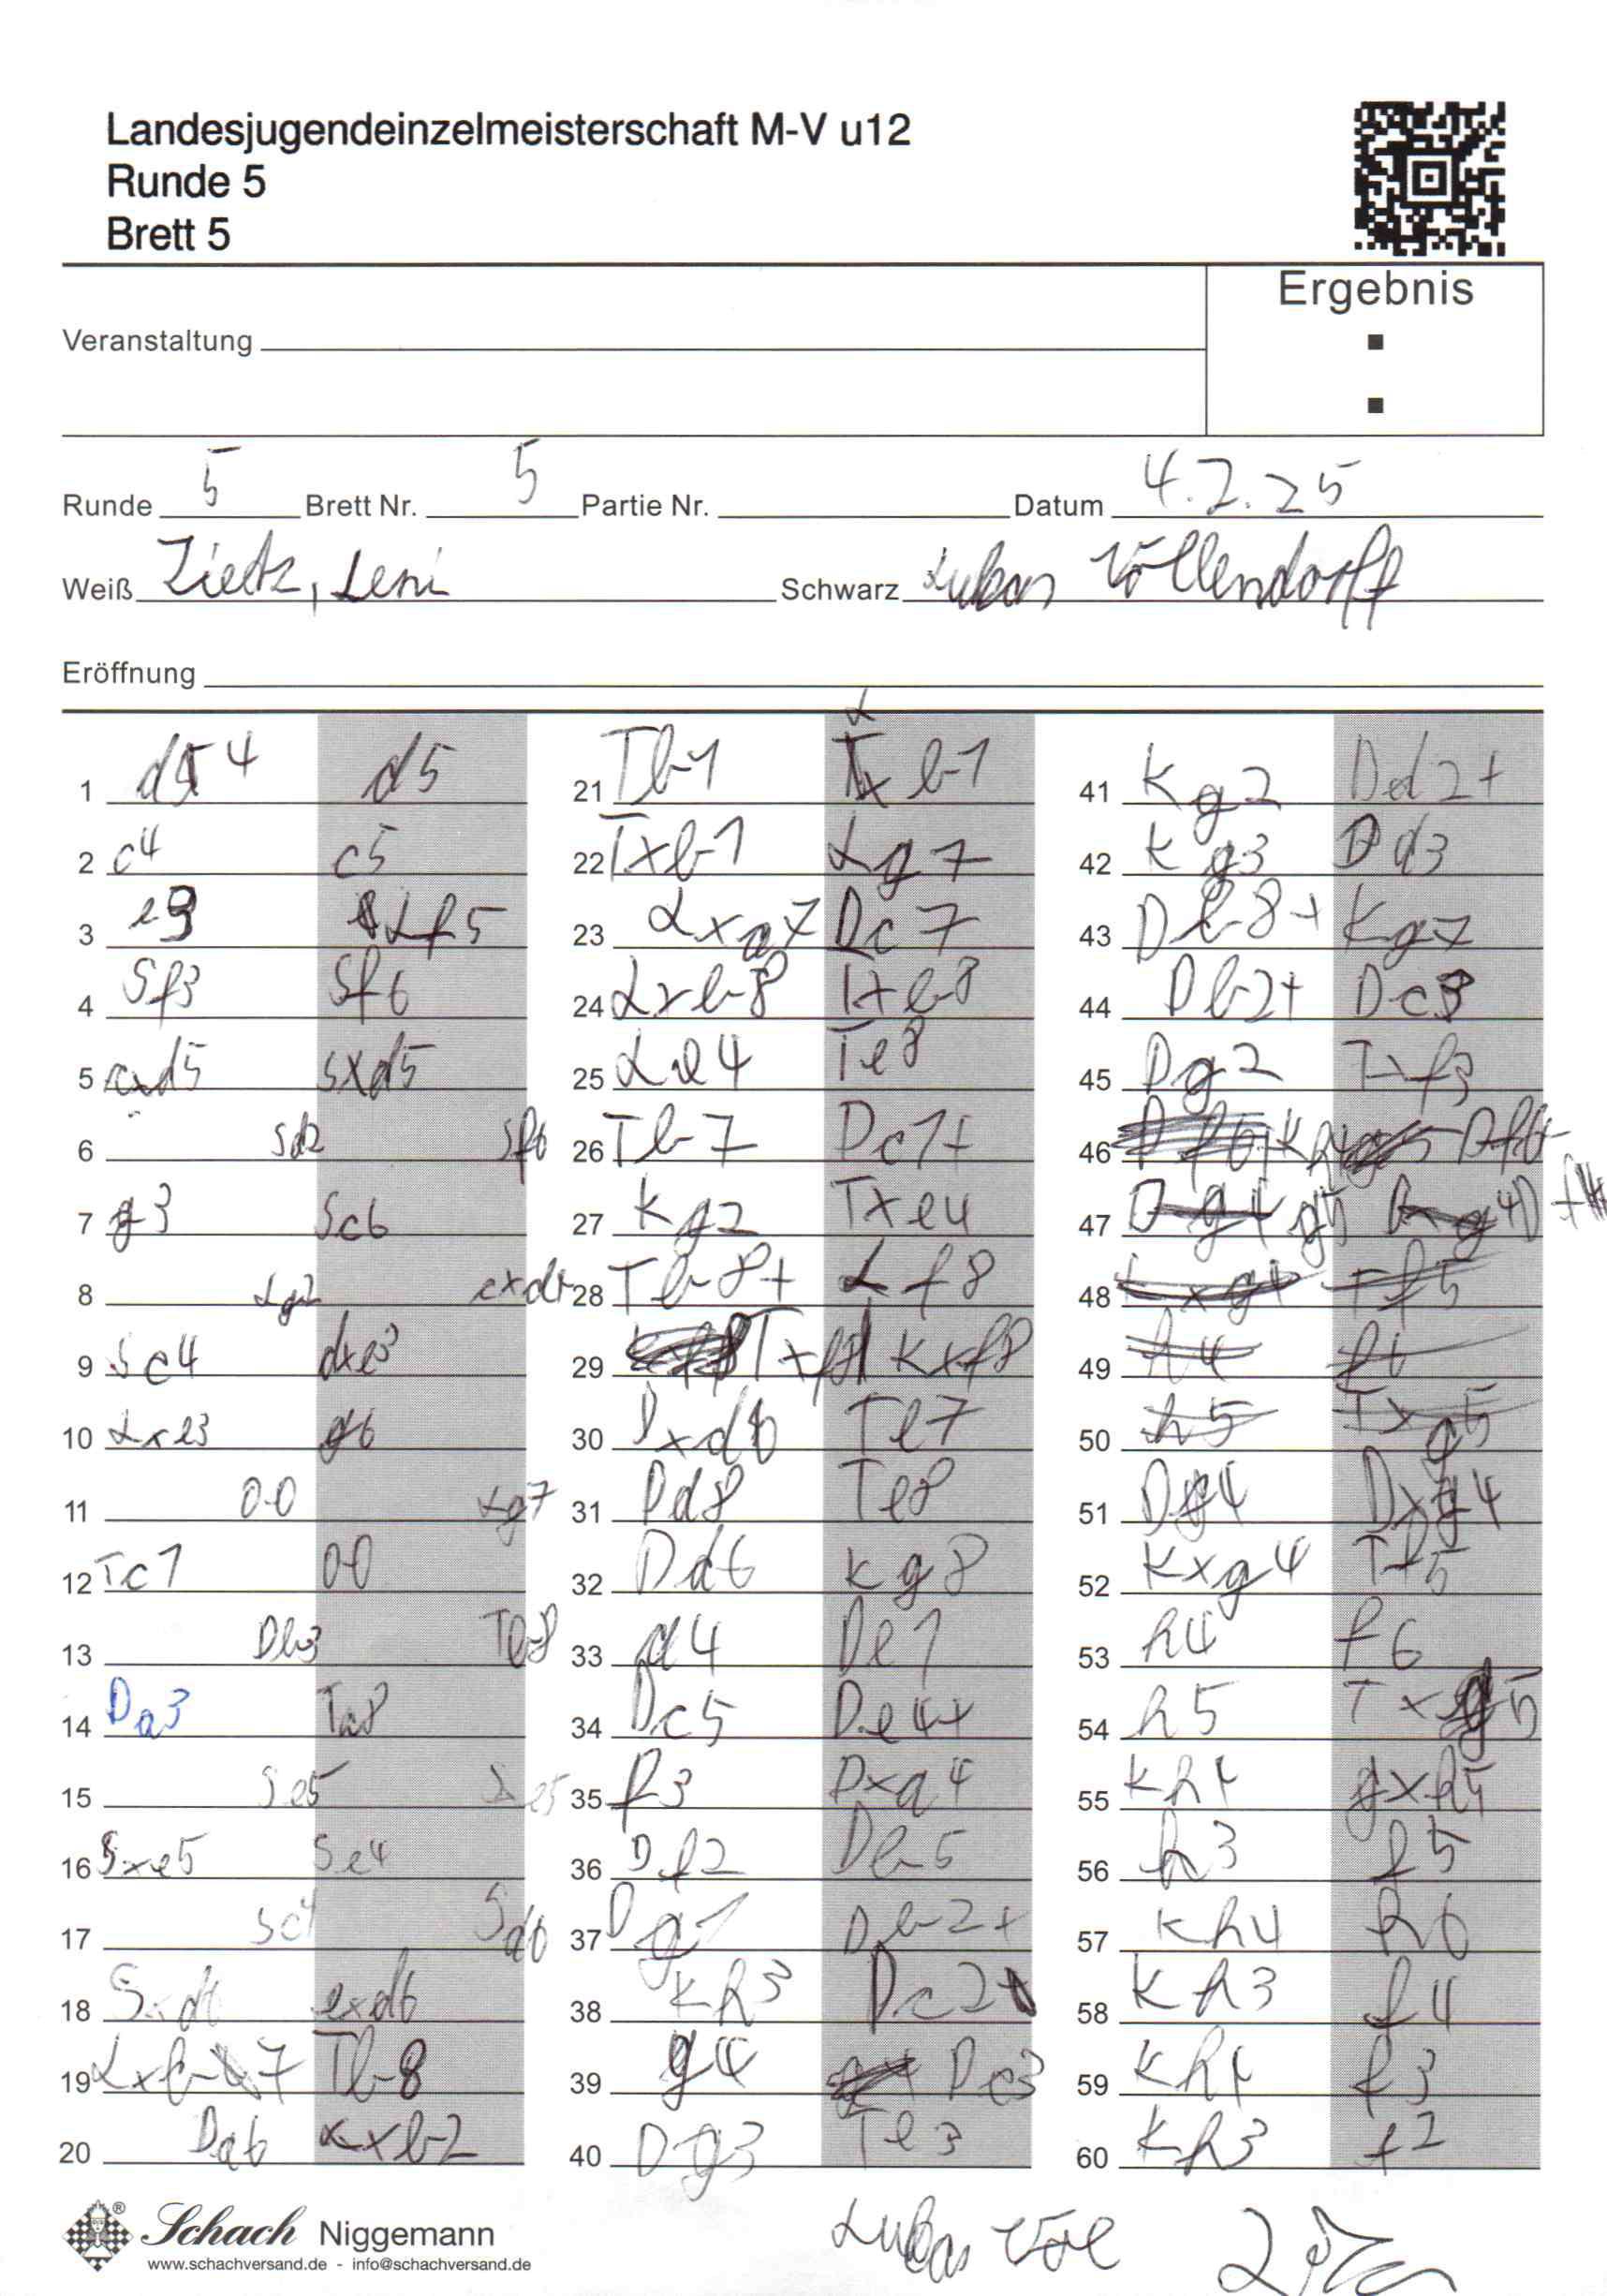 Landesjugendeinzelmeisterschaft M-V u12
Runde 5
Brett 5
Ergebnis
Veranstaltung
Runde 5 Brett Nr. 5 Partie Nr. Datum 4.2.25
Weiß Zietz, Leni Schwarz Lukas Völlendorff
Eröffnung
1 d4 d5
2 c4 c5
3 e3 Lf5
4 Sf3 Sf6
5 cxd5 Sxd5
6 Sd2 Sf6
7 g3 Sc6
8 Lg2 cxd4
9 Sc4 dxe3
10 Lxe3 g6
11 0-0 Lg7
12 Tc1 00
13 Db3 Tb8
14 Da3 Ta8
15 Se5 Le5
16 Sxe5 Se4
17 Sc4 Sd6
18 Sxd6 exd6
19 Lxb7 Tb8
20 Da6 Lxb2
21 Tb1 Lxb1
22 Txb1 Lg7
23 Lxa7 Dc7
24 Lxb8 Txb8
25 Le4 Te8
26 Tb7 Dc1+
27 Kg2 Txe4
28 Tb8+ Lf8
29 Txf8 Kxf8
30 Dxd6 Te7
31 Dd8 Te8
32 Dd6 Kg8
33 a4 De1
34 Dc5 De4+
35 f3 Dxa4
36 Df2 Db5
37 Dg1 Db2+
38 Kh3 Dc2
39 g4 De3
40 Dg3 Te3
41 Kg2 Dd2+
42 Kg3 Dd3
43 Db8+ Kg7
44 Db2+ Dc3
45 Dg2 Txf3
46 Kh4 Df6+
47 g5 Df4
48 Kxg4 Tf5
49 h4 f6
50 h5 Txg5
51 Dg4 Dxg4
52 Kxg4 Tf5
53 h4 f6
54 h5 Txg5
55 Kh4 gxh5
56 h3 f5
57 Kh4 h6
58 Kh3 f4
59 Kh4 f3
60 Kh3 f2
Schach Niggemann
www.schachversand.de - info@schachversand.de
Lukas Völ